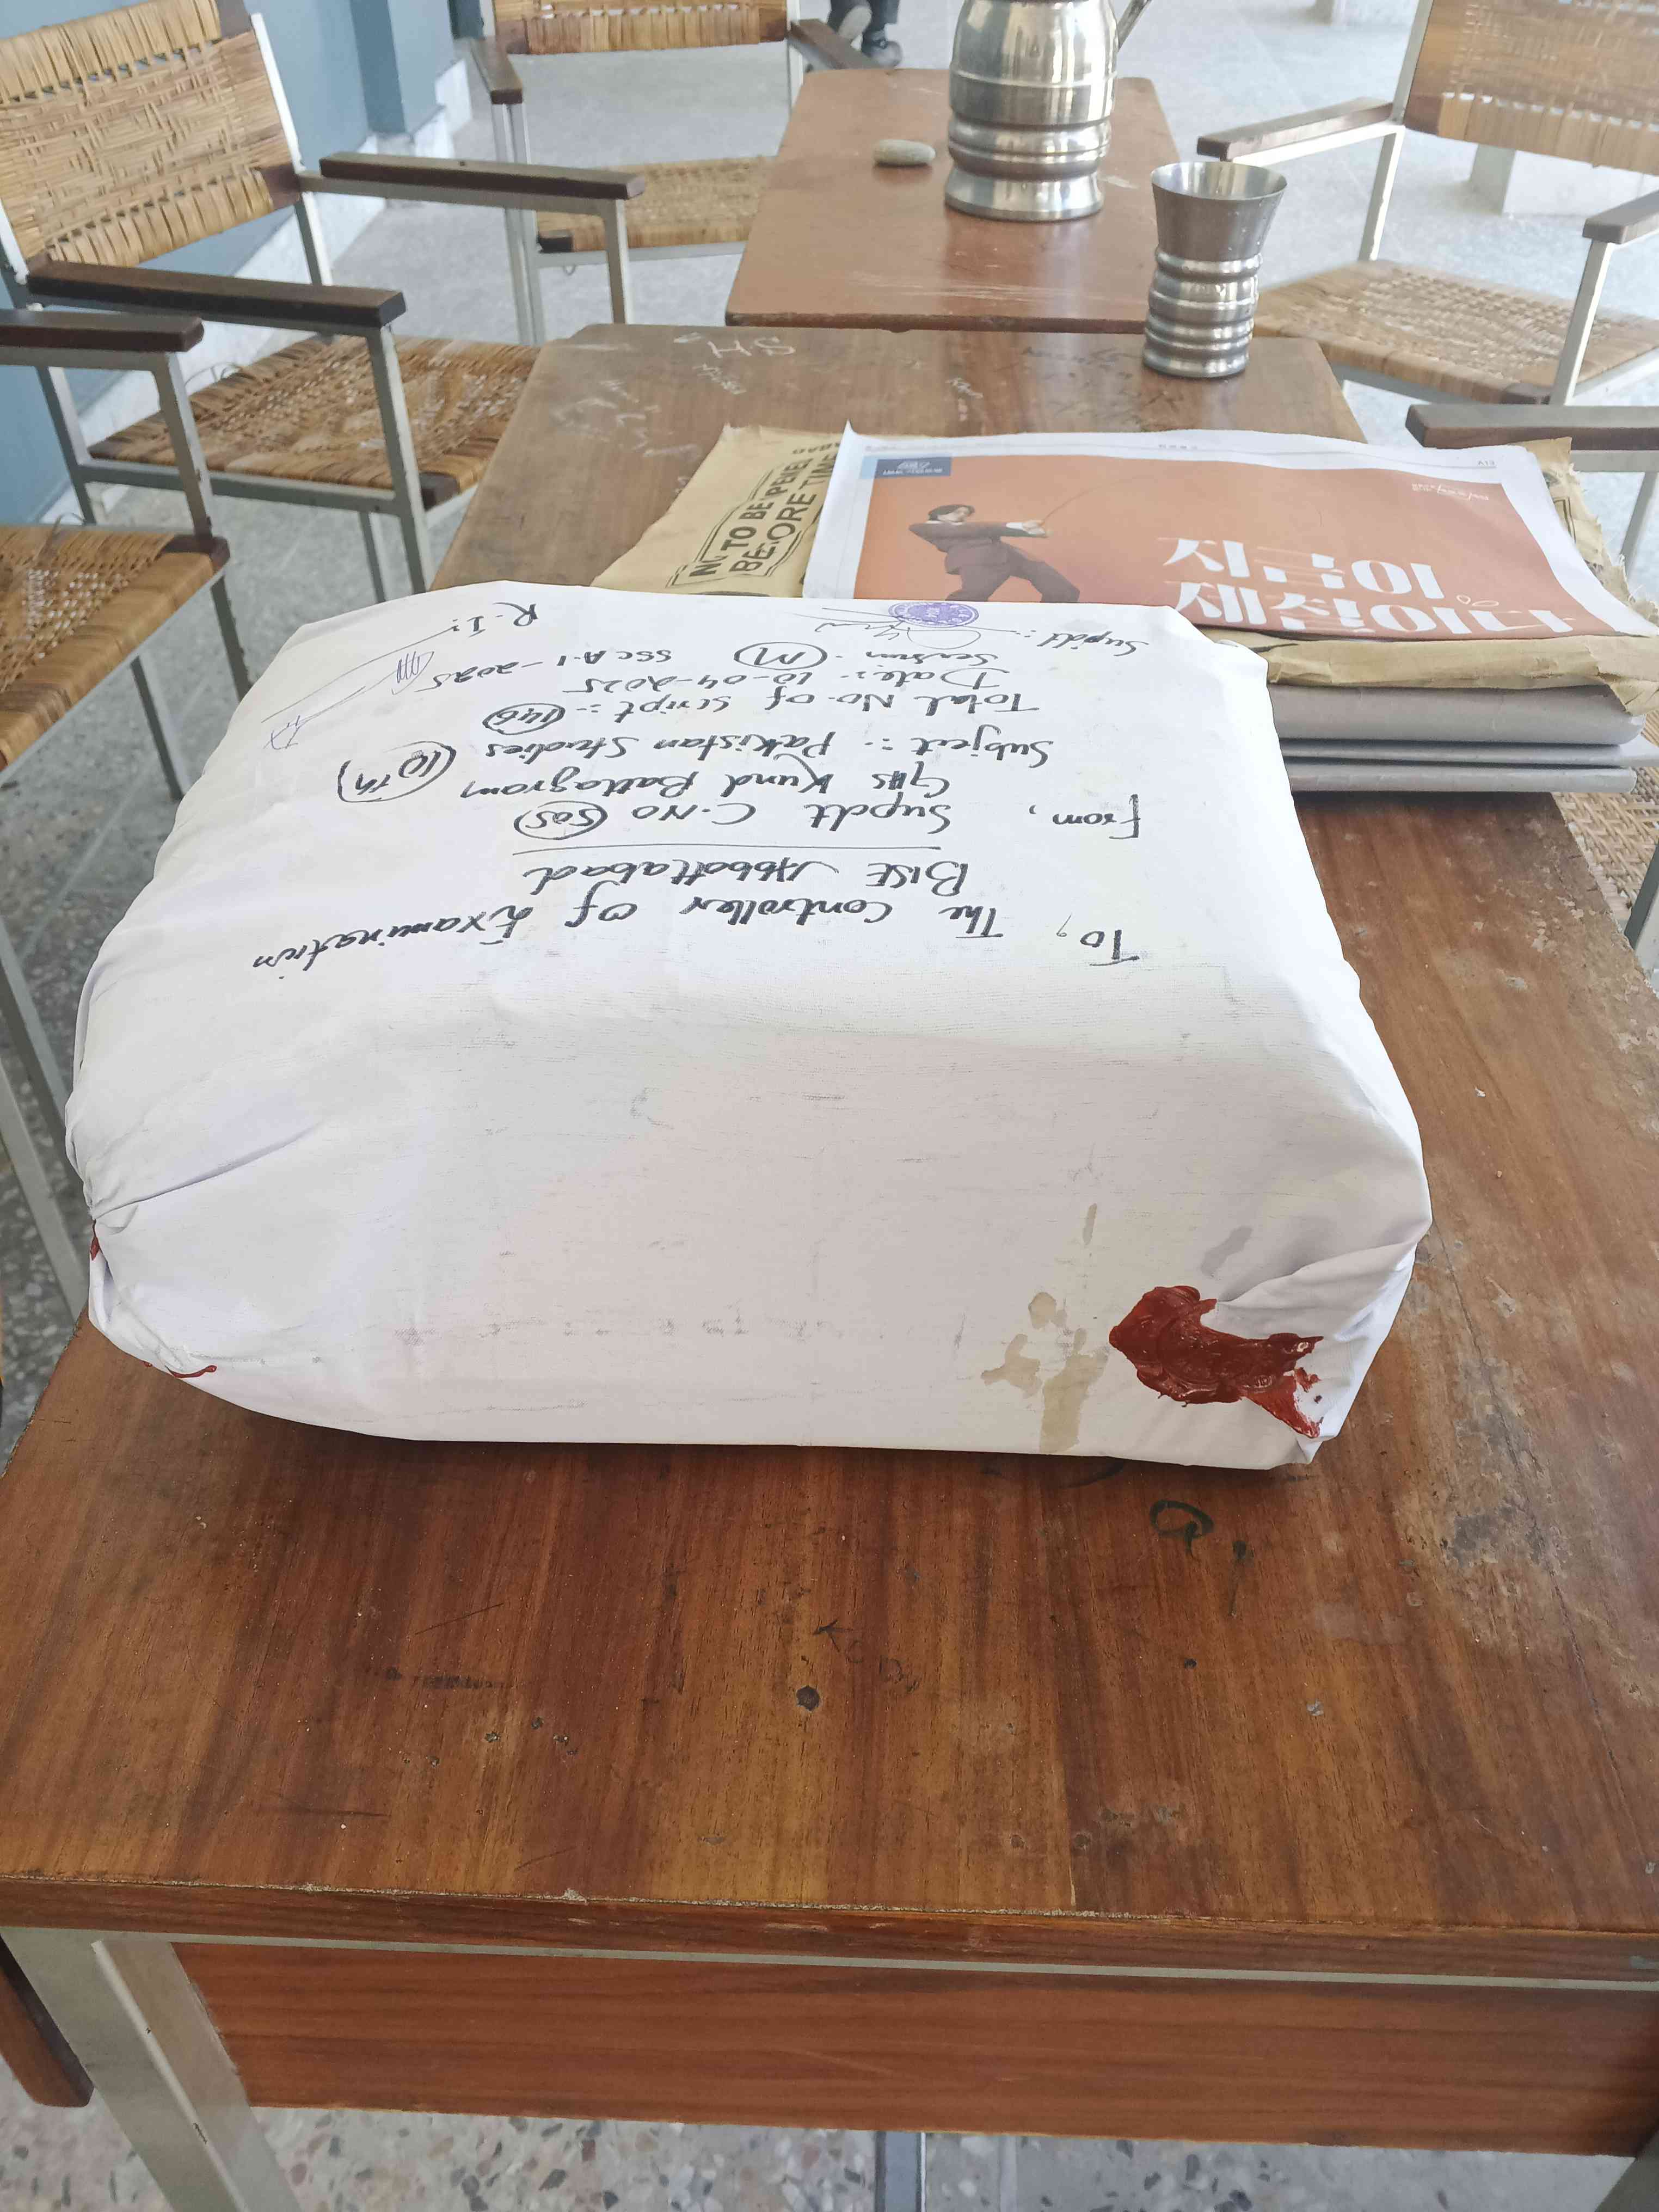 To,
The Controller Of Examination
BISE Abbottabad
From,
Supdt C.NO 505
GHS Kund Battagram
Subject:- Pakistan Studies 10th
Total No. of script:- 146
Date:- 10-04-2025
Session- M SSC A-I-2025
Supdt:-
R.I:-
NOT TO BE OPENED
BEFORE TIME
A13
지금이
제철이다